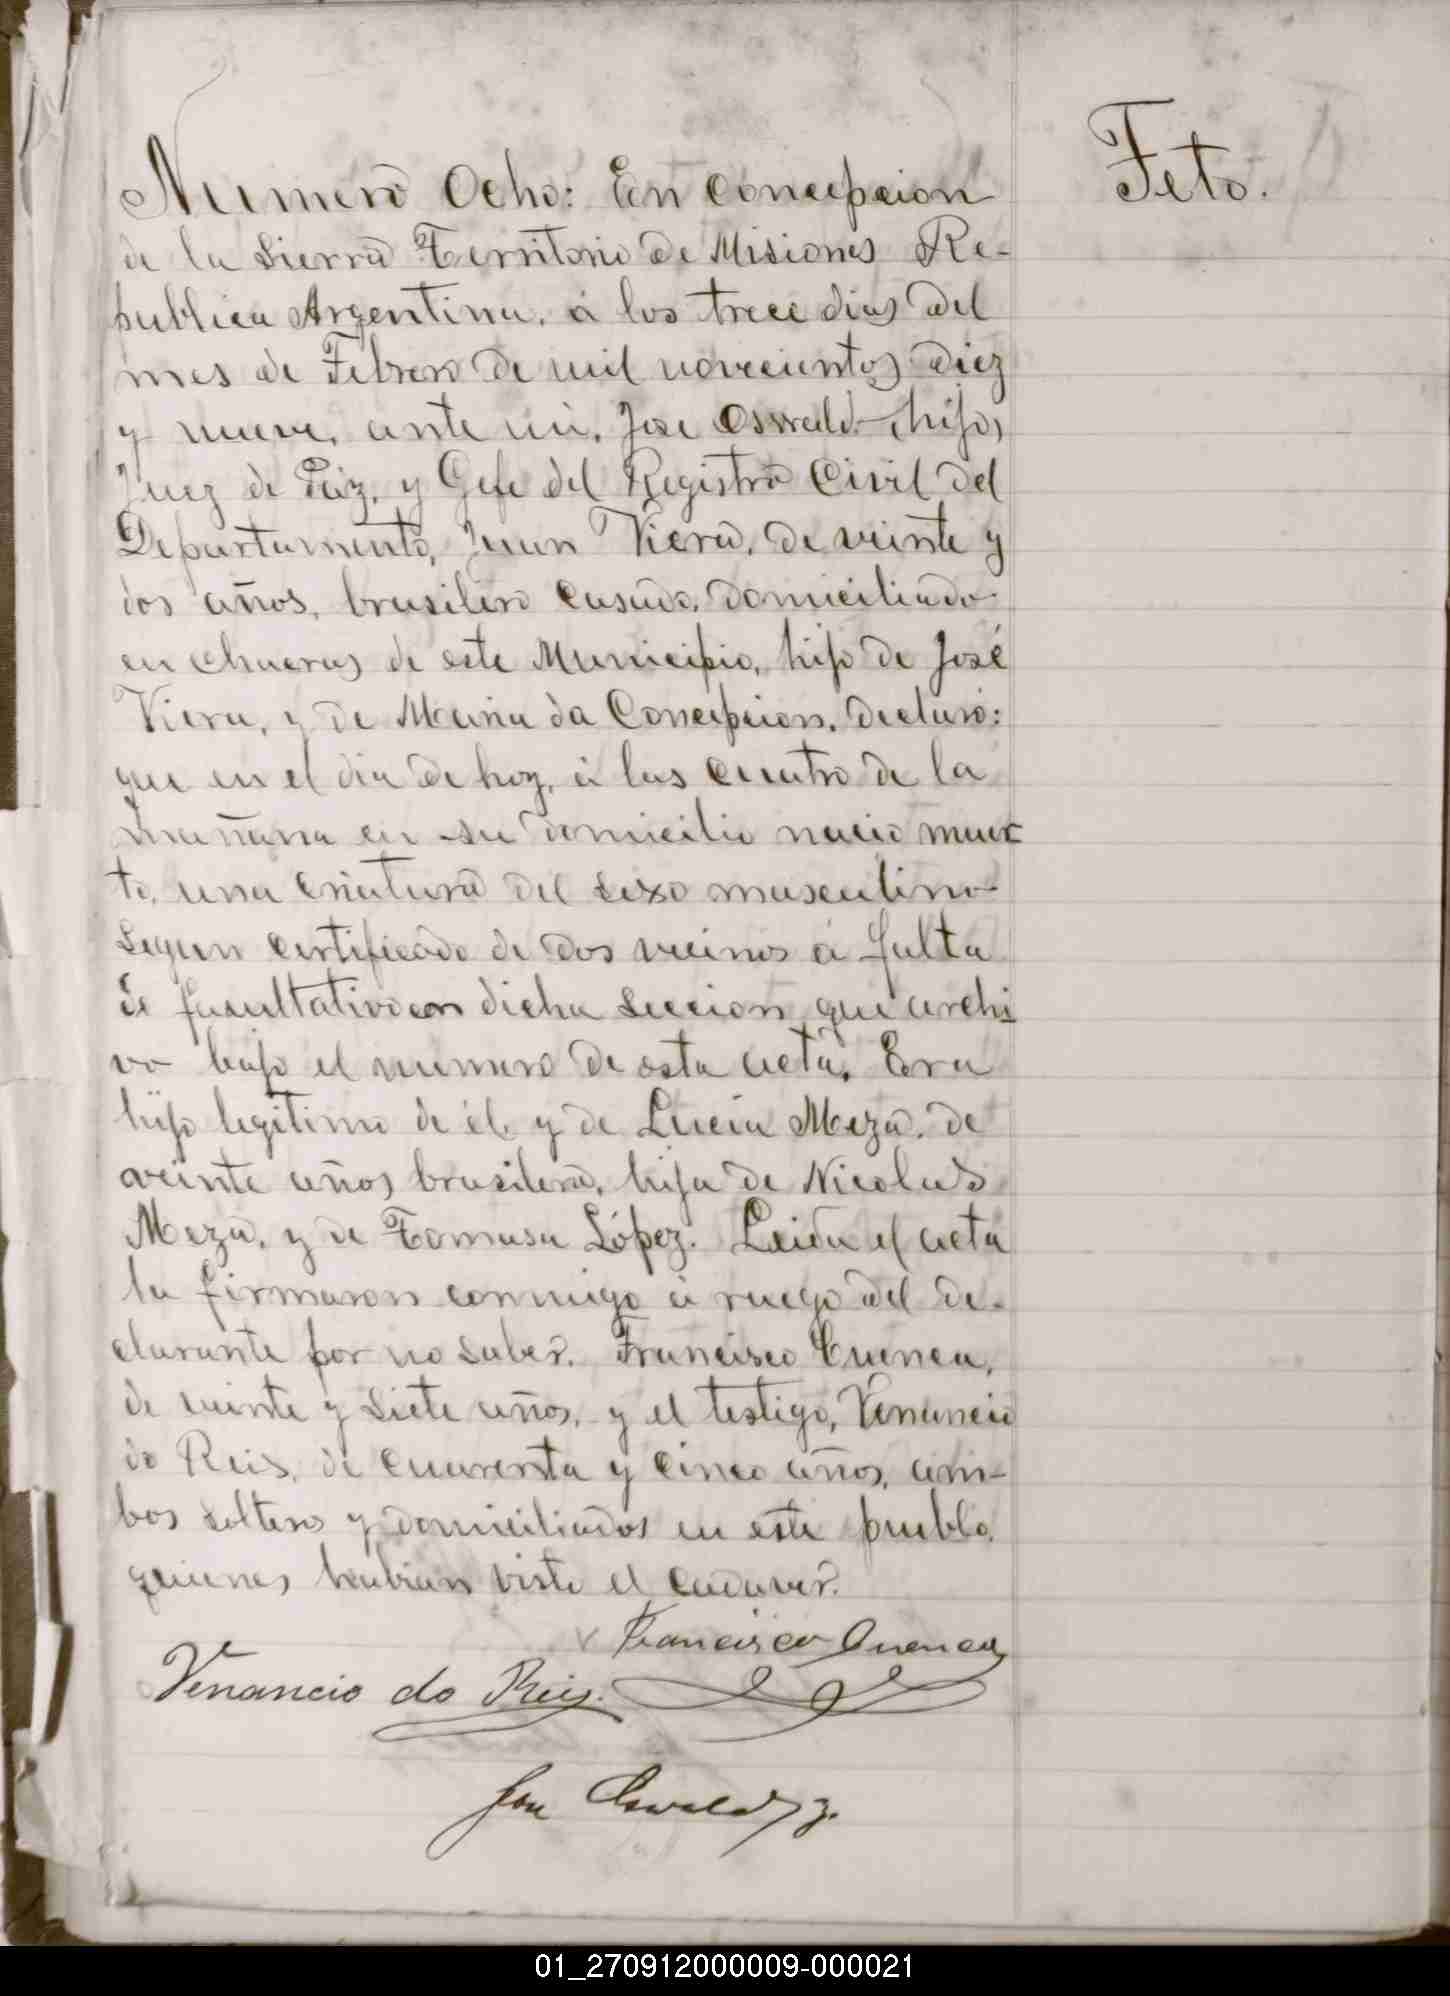 Feto.
Numero Ocho: En Concepcion
de la Sierra Territorio de Misiones Re-
publica Argentina, á los trece dias del
mes de Febrero de mil novecientos diez
y nueve, ante mi, Jose Oswald (hijo)
Juez de Paz, y Gefe del Registro Civil del
Departamento, Juan Viera, de veinte y
dos años, brasilero casado, domiciliado
en chacras de este Municipio, hijo de José
Viera, y de Maria da Concepcion, declaró:
que en el dia de hoy, á las cuatro de la
mañana en su domicilio nació muer
to, una criatura del sexo masculino
segun certificado de dos vecinos á falta
de facultativo en dicha seccion que archi
vo bajo el numero de esta acta. Era
hijo legitimo de él y de Lucia Meza, de
veinte años brasilera, hija de Nicolas
Meza, y de Tomasa López. Leida el acta
la firmaron conmigo á ruego del de-
clarante por no saber. Francisco Cuenca,
de veinte y siete años, y el testigo, Venancio
do Reis, de cuarenta y cinco años, am-
bos solteros y domiciliados en este pueblo,
quienes habian visto el cadaver.
Francisco Cuenca
Venancio do Reis.
Jose Oswald
01_270912000009-000021